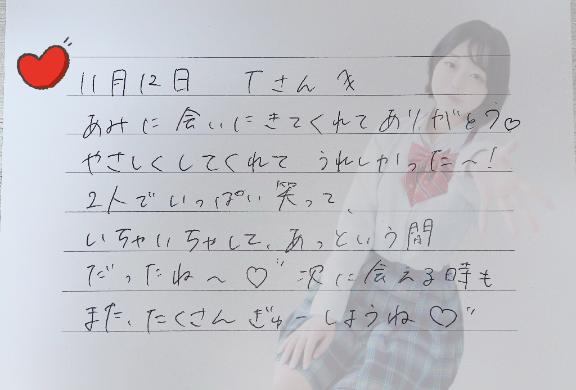 11月12日 Tさんへ
あみに会いにきてくれてありがとう♡
やさしくしてくれて うれしかった〜!
2人でいっぱい笑って、
いちゃいちゃして、あっという間
だったね〜♡ 次に会える時も
また、たくさんぎゅーしようね♡